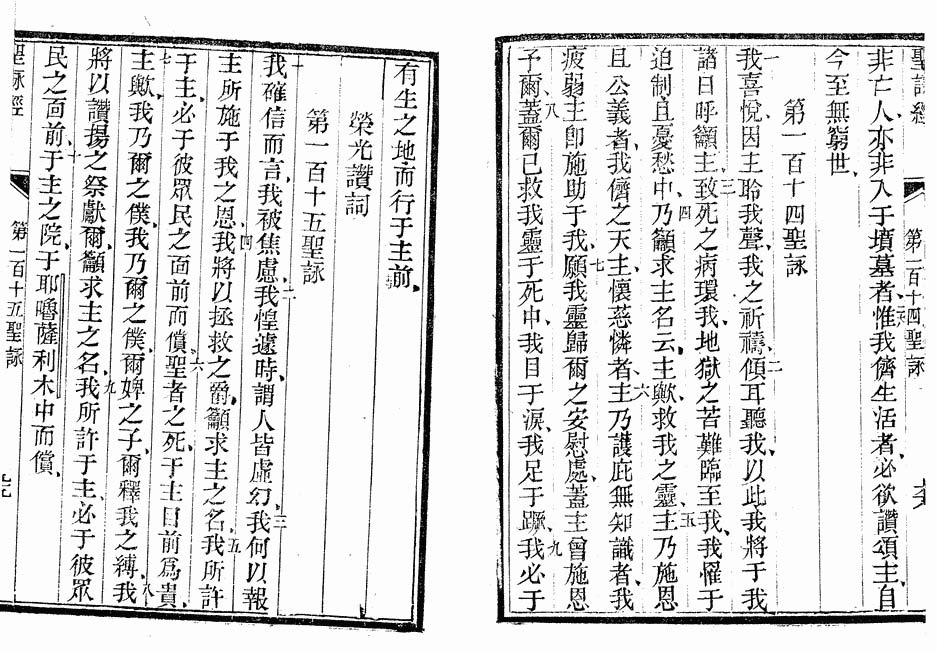 聖詠經
第一百十四聖詠
非亡人亦非入于墳墓者惟我儕生活者必欲讚頌主自
今至無窮世
第一百十四聖詠
一我喜悅因主聆我聲我之祈禱二傾耳聽我以此我將于我
諸日呼籲主三致死之病環我地獄之苦難臨至我我罹于
迫制且憂愁中四乃籲求主名云主歟救我之靈五主乃施恩
且公義者我儕之天主懷慈憐者六主乃護庇無知識者我
疲弱主卽施助于我七願我靈歸爾之安慰處蓋主曾施恩
予爾八蓋爾已救我靈于死中我目于淚我足于蹶九我必于
有生之地而行于主前
榮光讚詞
第一百十五聖詠
一我確信而言我被焦慮二我惶遽時謂人皆虛幻三我何以報
主所施于我之恩四我將以拯救之爵籲求主之名五我所許
于主必于彼眾民之面前而償六聖者之死于主目前爲貴
七主歟我乃爾之僕我乃爾之僕爾婢之子爾釋我之縛八我
將以讚揚之祭獻爾籲求主之名九我所許于主必于彼眾
民之面前十于主之院于耶嚕薩利木中而償
聖詠經
第一百十五聖詠